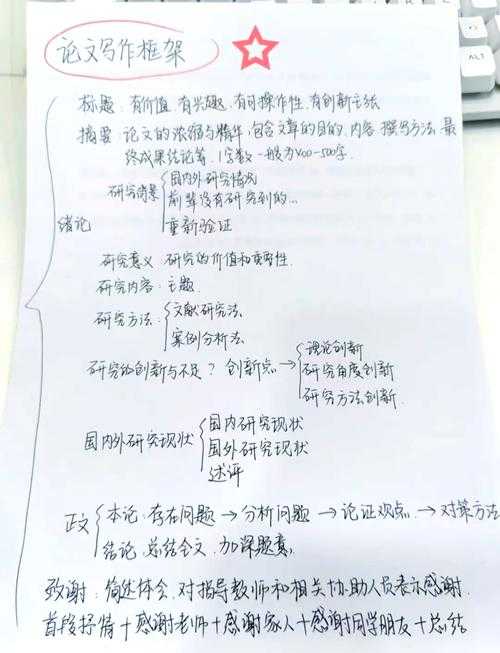 论文写作框架
标题:有价值,有兴趣,有可操作性,有创新主张
摘要:论文的浓缩与精华,包含文章的目的、内容、撰写方法、最
终成果结论等.字数一般为400-500字.
绪论
研究背景
国内外研究情况
前辈没有研究到的...
重新验证
研究意义:研究的价值和重要性.
研究内容:主题.
研究方法:
文献研究法
案例分析法
研究的创新与不足?创新点→
理论创新
研究角度创新
研究方法创新
国内外研究现状
国内研究现状
国外研究现状
述评
正文
本论:存在问题→分析问题→论证观点→对策方法
结论:总结全文,加深题意.
致谢:简述体会,对指导教师和相关协助人员表示感谢.
首段抒情+感谢老师+感谢家人+感谢同学朋友+总结
ALT